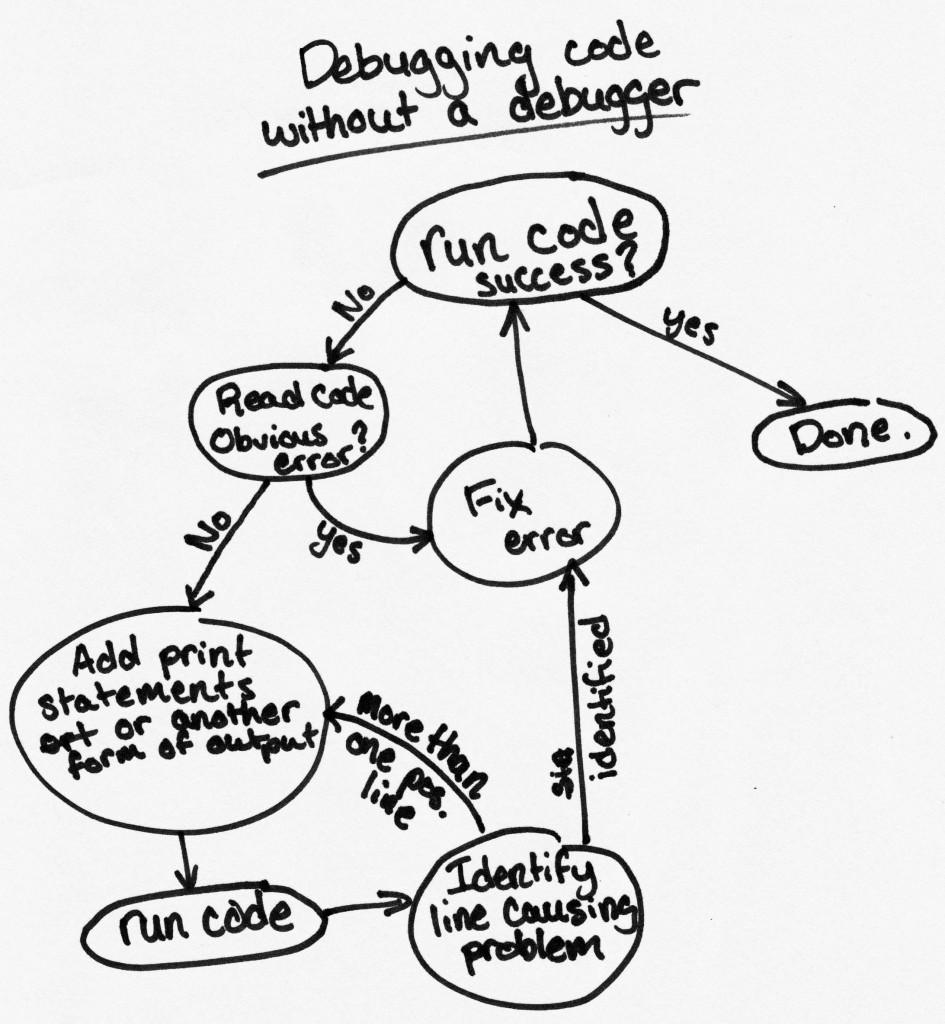 Debugging code
without a debugger
run code
success?
No
yes
Read code
Obvious ?
error?
Done.
Fix
error
No
yes
Add print
statements
or another
form of output
More than
one pos.
line
identified
run code
Identify
line causing
problem